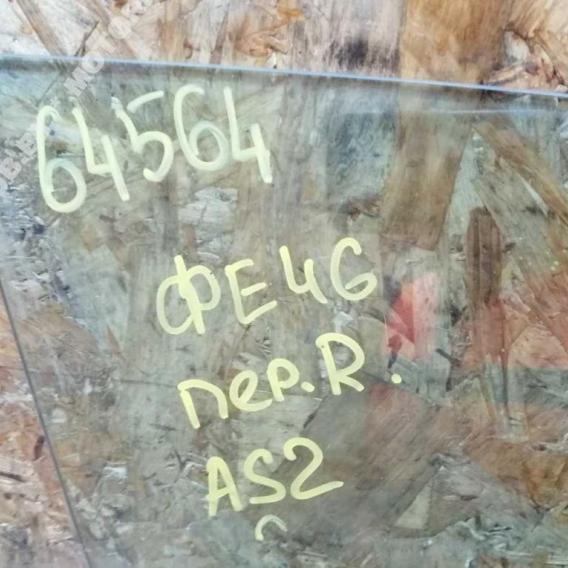 64564
ФЕ4G
пер.R.
AS2